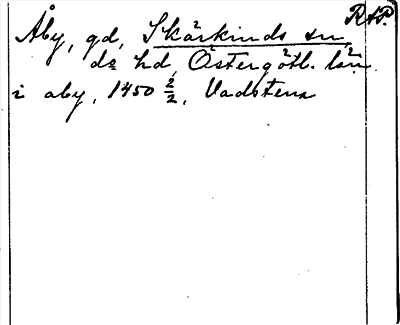 RAP.
Åby, gd, Skärkinds sn,
ds hd, Östergötl. län
i aby, 1450 2/2, Vadstena